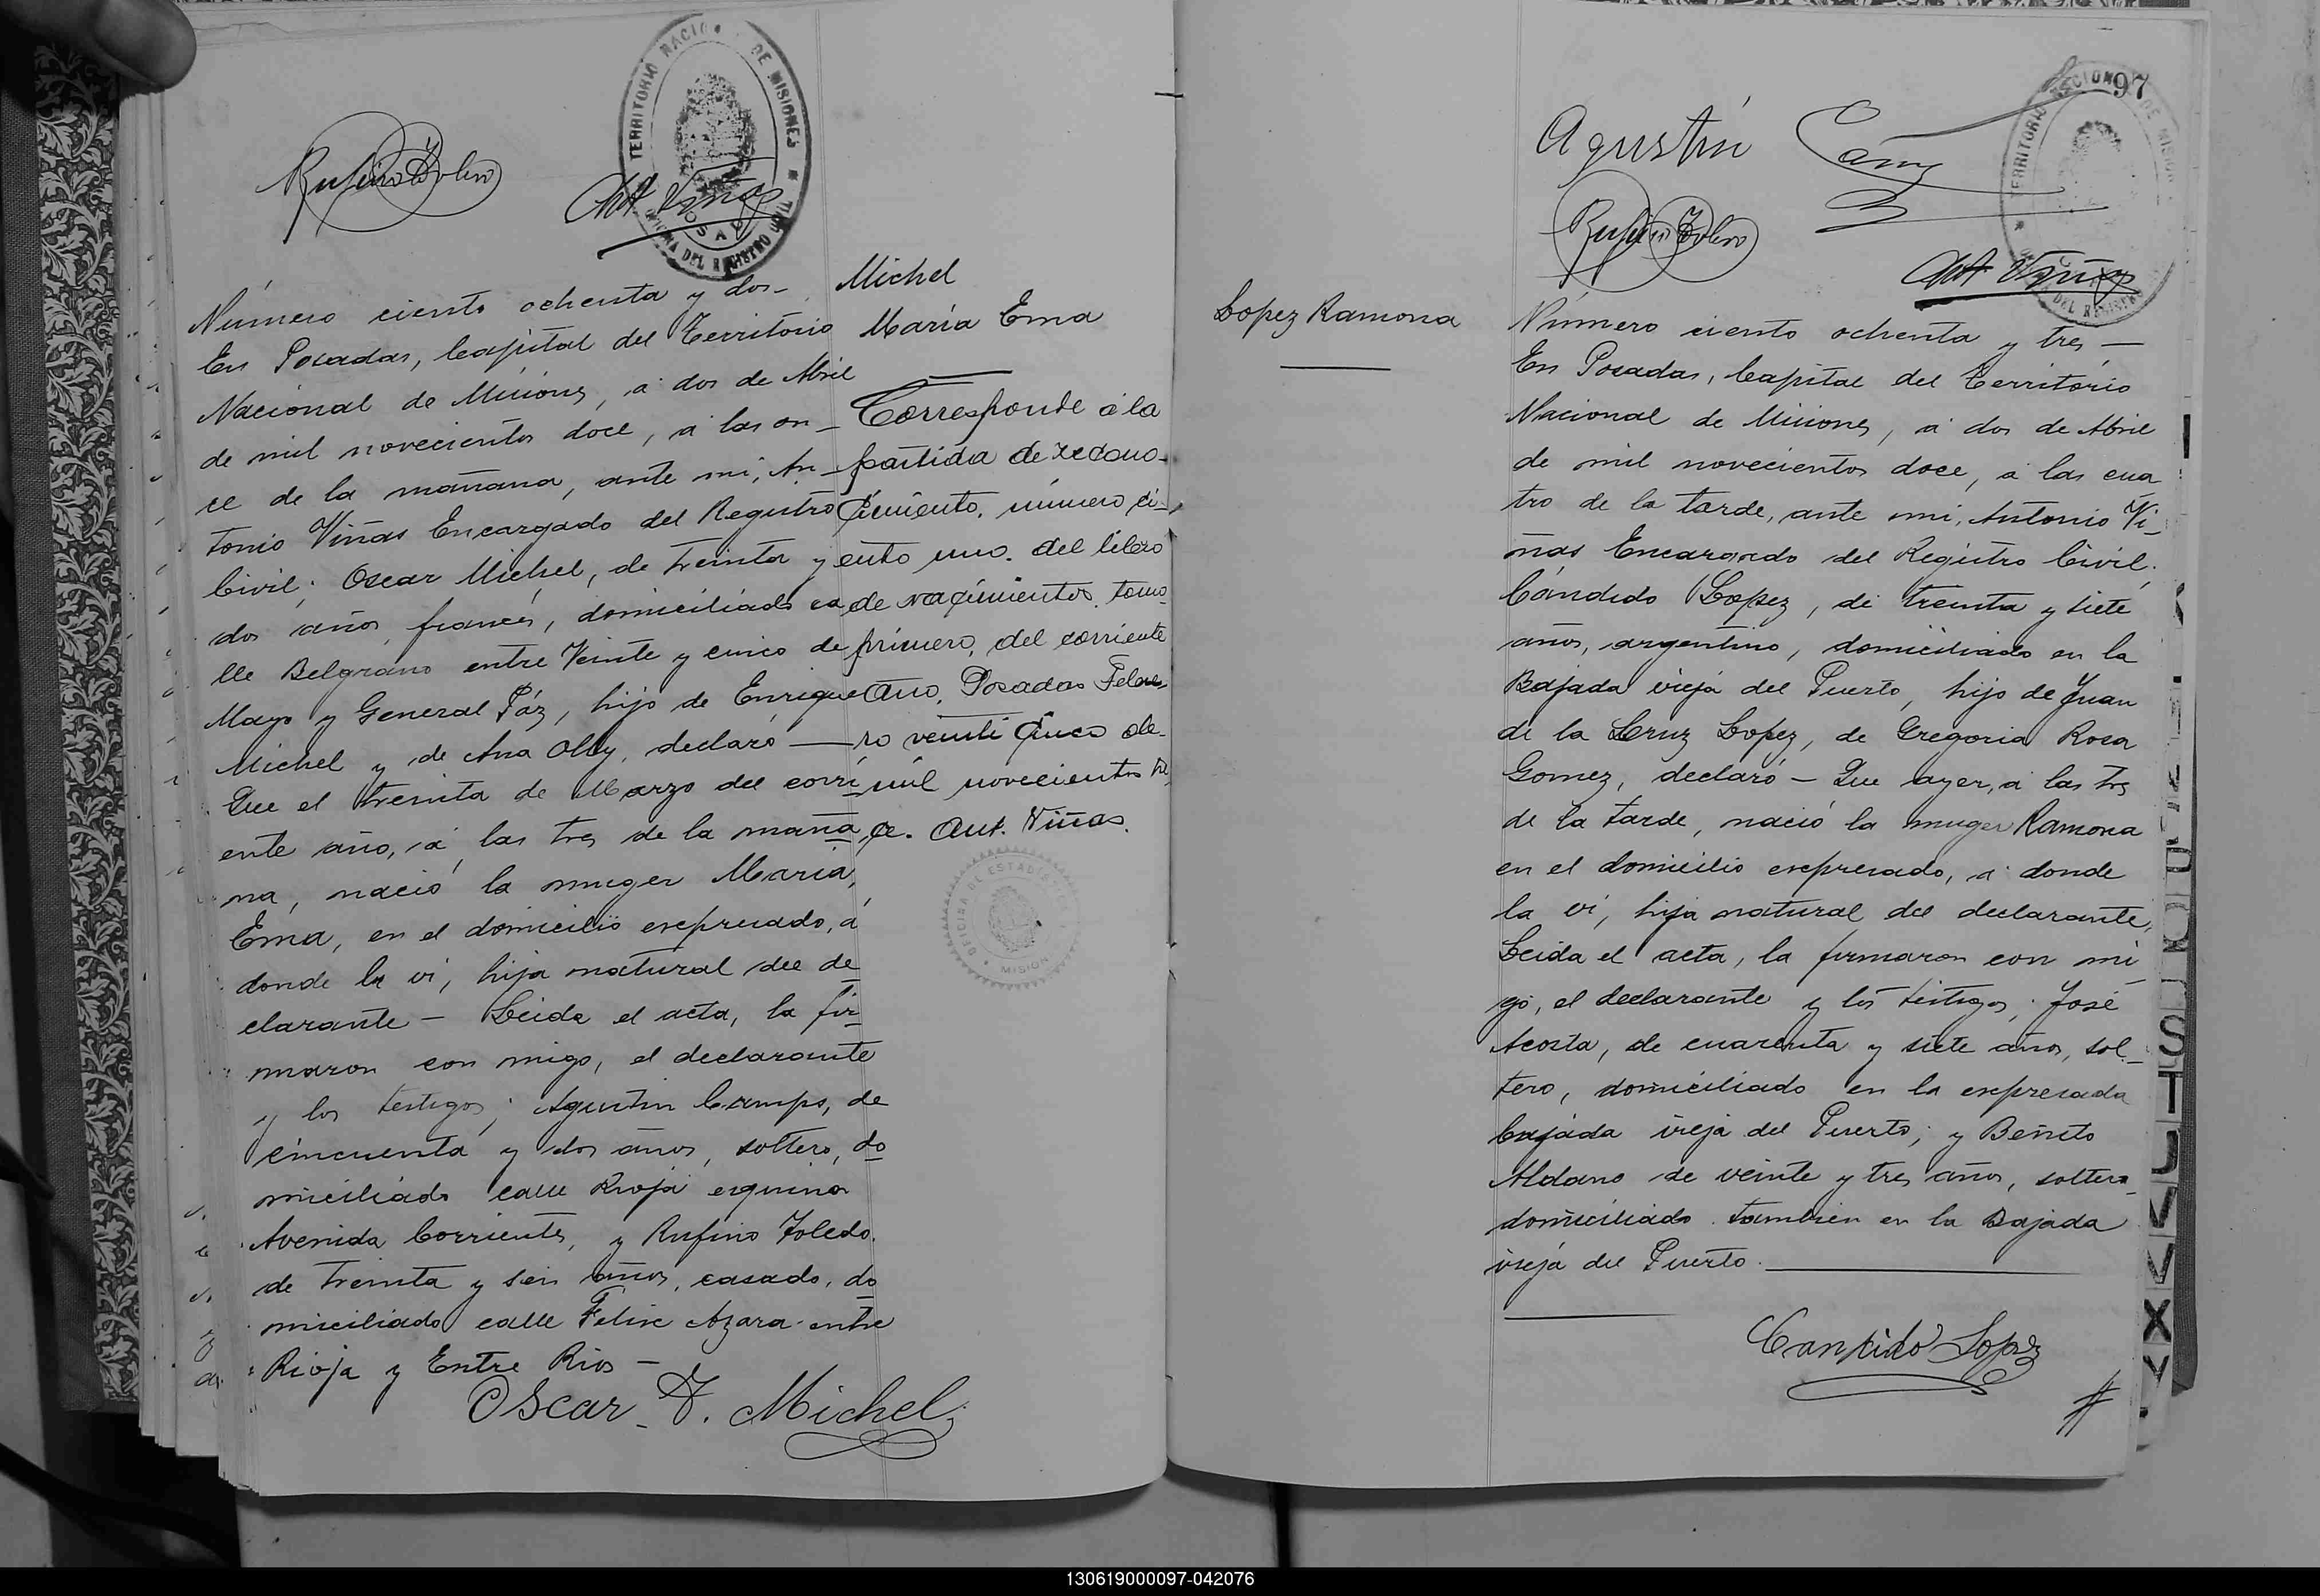 TERRITORIO NACIO DE MISIONES
OFICINA DEL REGISTRO CIVIL
Rufino Toledo
Ant Viñas
Número ciento ochenta y dos—
En Posadas, Capital del Territorio
Nacional de Misiones, á dos de Abril
de mil novecientos doce, á las on—
ce de la mañana, ante mi, An—
tonio Viñas Encargado del Registro
Civil; Oscar Michel, de treinta y
dos años, francés, domiciliado ca
lle Belgrano entre Veinte y cinco de
Mayo y General Páz, hijo de Enrique
Michel y de Ana Olly, declaró —
Que el treinta de Marzo del corri
ente año, á las tres de la maña
na, nació la muger María,
Ema, en el domicilio expresado, á
donde la vi, hija natural del de
clarante — Leida el acta, la fir
maron con migo, el declarante
y los testigos; Agustin Camps, de
cincuenta y dos años, soltero, do
miciliado calle Rioja esquina
Avenida Corrientes, y Rufino Toledo.
de treinta y seis años, casado, do
miciliado calle Felix Azara entre
Rioja y Entre Rios —
Oscar F. Michel
Michel
María Ema
Corresponde á la
partida de recono-
cimiento, número ci-
ento uno. del libro
de nacimientos, tomo
primero, del corriente
año. Posadas Febre
ro veinti cinco de
mil novecientos tre
ce. Ant. Viñas.
OFICINA DE ESTADISTICA
MISION
97
Agustín Camps
Rufino Toledo
Ant Viñas
Lopez Ramona
Número ciento ochenta y tres —
En Posadas, Capital del Territorio
Nacional de Misiones, á dos de Abril
de mil novecientos doce, á las cua
tro de la tarde, ante mi, Antonio Vi—
ñas Encargado del Registro Civil;
Cándido Lopez, de treinta y siete
años, argentino, domiciliado en la
Bajada vieja del Puerto, hijo de Juan
de la Cruz Lopez, de Gregoria Rosa
Gomez, declaró — Que ayer, á las tres
de la tarde, nació la muger Ramona
en el domicilio expresado, á donde
la vi, hija natural del declarante,
Leida el acta, la firmaron con mi
go, el declarante y los testigos; José
Acosta, de cuarenta y siete años, sol—
tero, domiciliado en la expresada
bajada vieja del Puerto; y Benito
Aldano de veinte y tres años, soltero
domiciliado tambien en la Bajada
vieja del Puerto.
Candido Lopez
S
T
J
V
V
X
Y
130619000097-042076